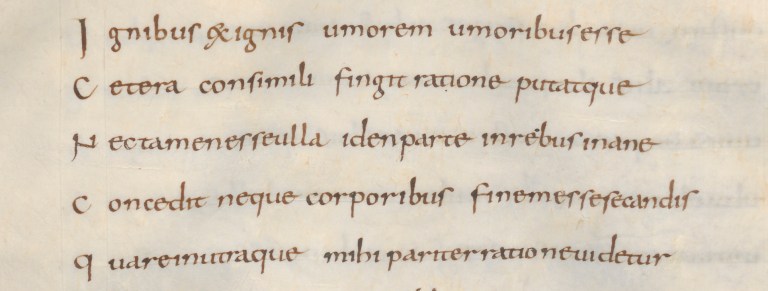 Ignibus ex ignis umorem umoribus esse
Cetera consimili fingit ratione putatque
Nec tamen esse ulla iden parte in rebus inane
Concedit neque corporibus finem esse secandis
Quare in utraque mihi pariter ratione uidetur